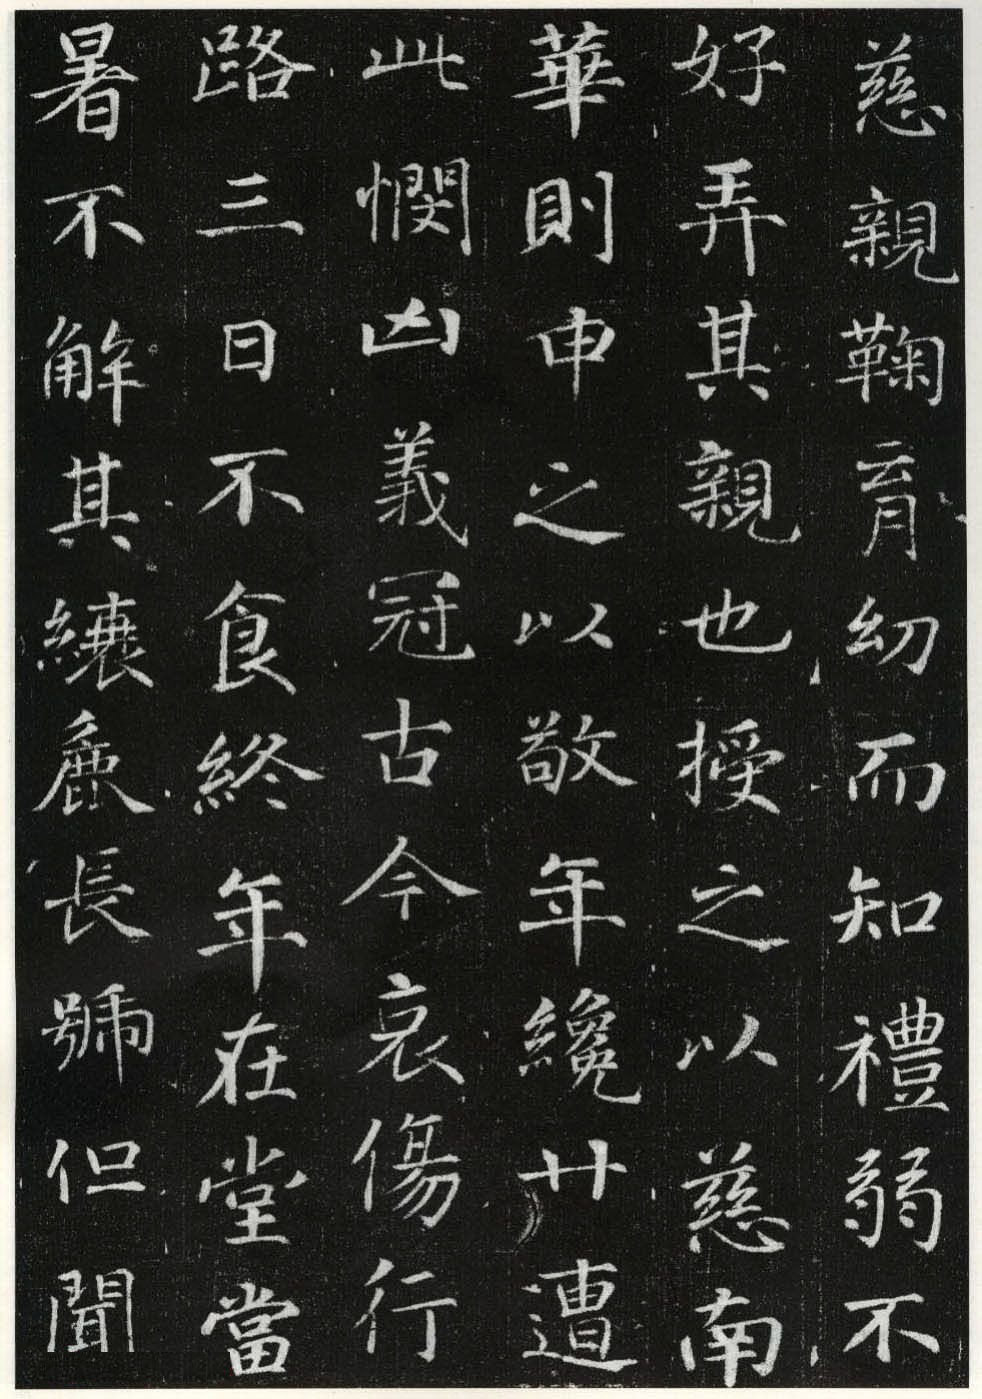 慈親鞠育幼而知禮弱不
好弄其親也授之以慈南
華則申之以敬年纔廿遭
此憫凶義冠古今哀傷行
路三日不食終年在堂當
暑不解其纕麁長號但聞